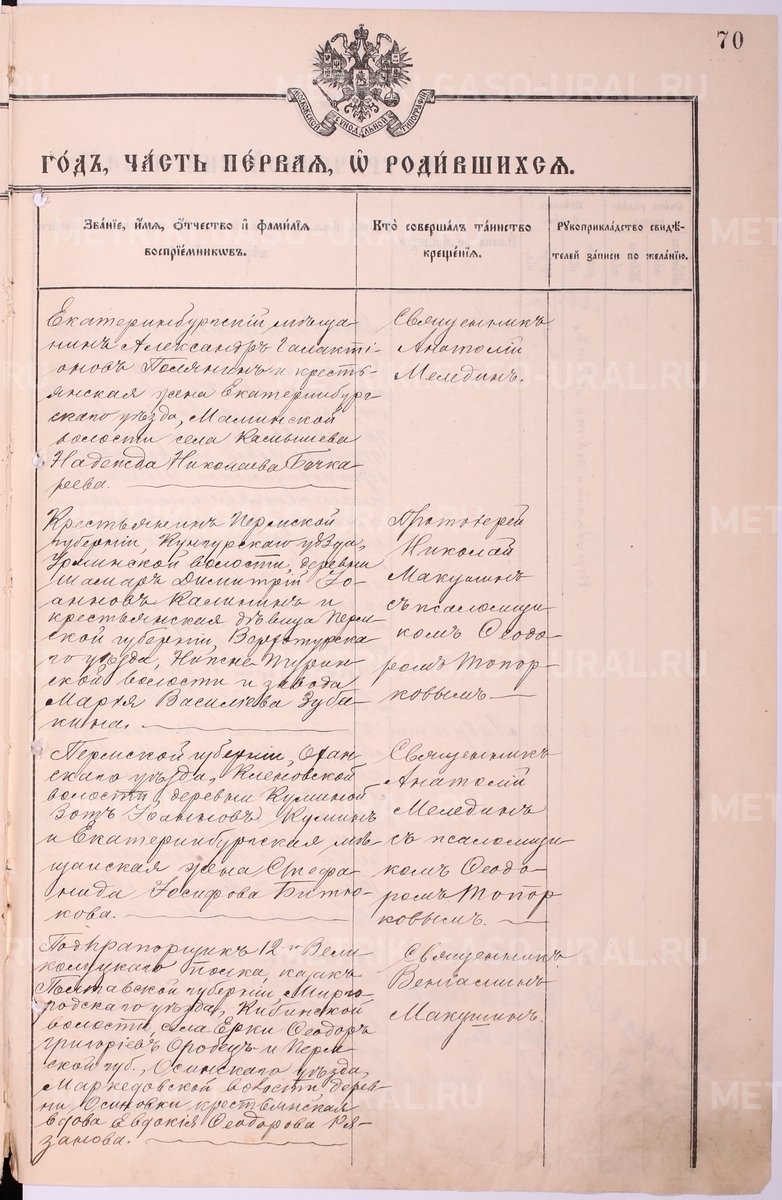 70
МОСКОВСКОЙ СѴНОДАЛЬНОЙ ТИПОГРАФІИ
ГО́ДЪ, ЧА́СТЬ ПЕ́РВАЯ, Ѡ҆ РОДИ́ВШИХСЯ.
Зва́нїе, и҆́мя, ѻ҆́тчество и҆ фами́лїя
воспрїе́мникѡвъ.
Кто̀ соверша́лъ та́инство
креще́нїя.
Рукоприкла́дство свидѣ́-
телей за́писи по жела́нїю.
Екатеринбургскій мѣща
нинъ Александръ Галакті-
оновъ и кресть-
янская жена Екатеринбург
скаго уѣзда, Маминской
волости села Камышева
Надежда Николаева Бочка
рева.
Священникъ
Анатолій
Мелединъ.
Крестьянинъ Пермской
губерніи, Кунгурскаго уѣзда,
волости, деревни
Шамаръ Димитрій Іо-
анновъ Калининъ и
крестьянская дѣвица Перм
ской губерніи, Верхотурска
го уѣзда, Нижне Турин
ской волости и завода
Марія Васильева Зуба-
кина.
Протоіерей
Николай
Макушинъ
съ псаломщи
комъ Ѳеодо-
ромъ Топор-
ковымъ.
Пермской губерніи, Охан-
скаго уѣзда, Кленовской
волости, деревни Куминой
Зотъ Іоанновъ Куминъ
и Екатеринбургская мѣ-
щанская жена Стефа
нида Іосифова Битю-
кова.
Священникъ
Анатолій
Мелединъ
съ псаломщи
комъ Ѳеодо-
ромъ Топор
ковымъ.
Подпрапорщикъ 12-го Вели
колуцкаго полка, казакъ
Полтавской губерніи, Мирго-
родскаго уѣзда, Кибинской
волости, села Ерки Ѳеодоръ
Григоріевъ и Перм-
ской губ., Осинскаго уѣзда,
волости дерев
ни Осиновки крестьянская
вдова Евдокія Ѳеодорова Ря-
занова.
Священникъ
Веніаминъ
Макушинъ.